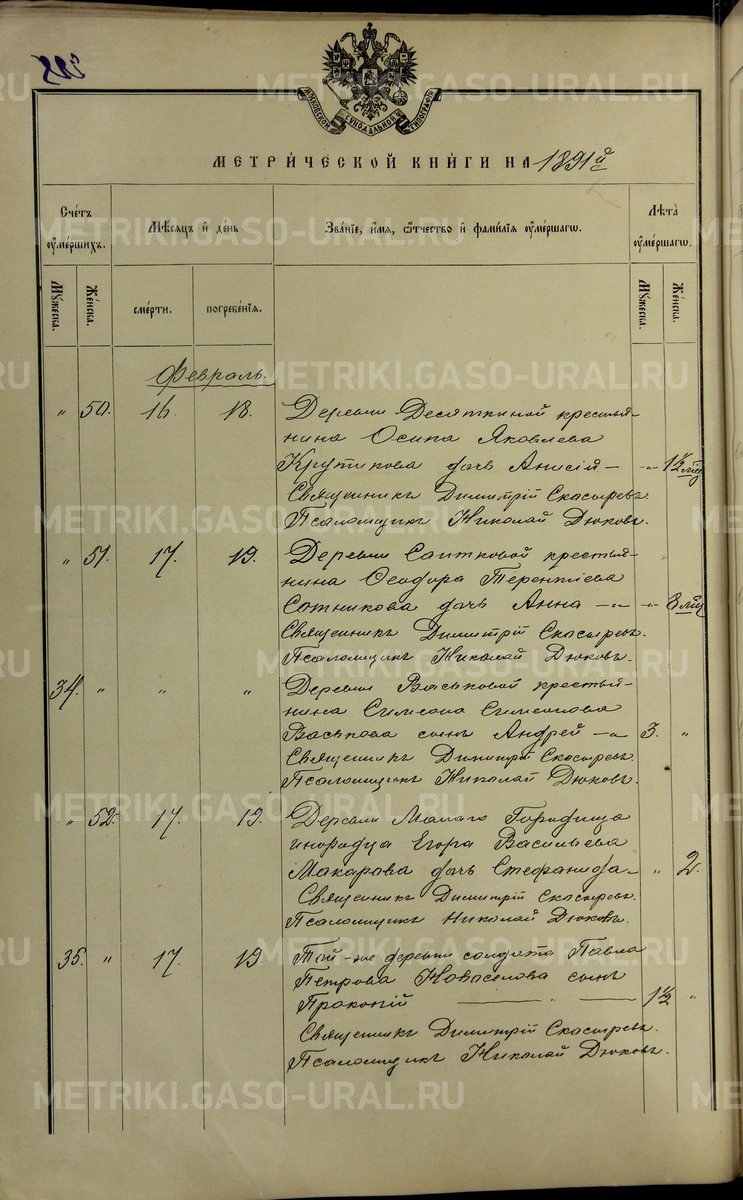 МОСКОВСКОЙ СѴНОДАЛЬНОЙ ТИПОГРАФІИ
МЕТРИЧЕСКОЙ КНИГИ НА 1891й
Счетъ оумершихъ.
Мѣсяцъ и день
Званіе, имя, ѿтчество и фамиліа оумершагѡ.
Лѣта оумершагѡ.
Мужеска.
Женска.
смерти.
погребеніа.
Мужеска.
Женска.
Февраль.
" 50. 16. 18. Деревни Десяткиной крестья-
нина Осипа Яковлева
Крутикова дочь Анисія — " 1½ мѣс
Священникъ Димитрій Скасыревъ.
Псаломщикъ Николай Дюковъ.
" 51. 17. 19. Деревни Соитковой крестья-
нина Ѳеодора Терентіева
Сотникова дочь Анна — " — " 8 мѣс
Священникъ Димитрій Скасыревъ.
Псаломщикъ Николай Дюковъ.
34. " " " Деревни Васьковой крестья-
нина Симеона Симеонова
Васькова сынъ Андрей — " 3. "
Священникъ Димитрій Скасыревъ.
Псаломщикъ Николай Дюковъ.
" 52. 17. 19. Деревни Малаго Городища
инородца Егора Васильева
Макарова дочь Стефанида — " 2.
Священникъ Димитрій Скасыревъ.
Псаломщикъ Николай Дюковъ.
35. " 17. 19. Той-же деревни солдата Павла
Петрова Новоселова сынъ
Прокопій — " — 1½ "
Священникъ Димитрій Скасыревъ.
Псаломщикъ Николай Дюковъ.
METRIKI.GASO-URAL.RU